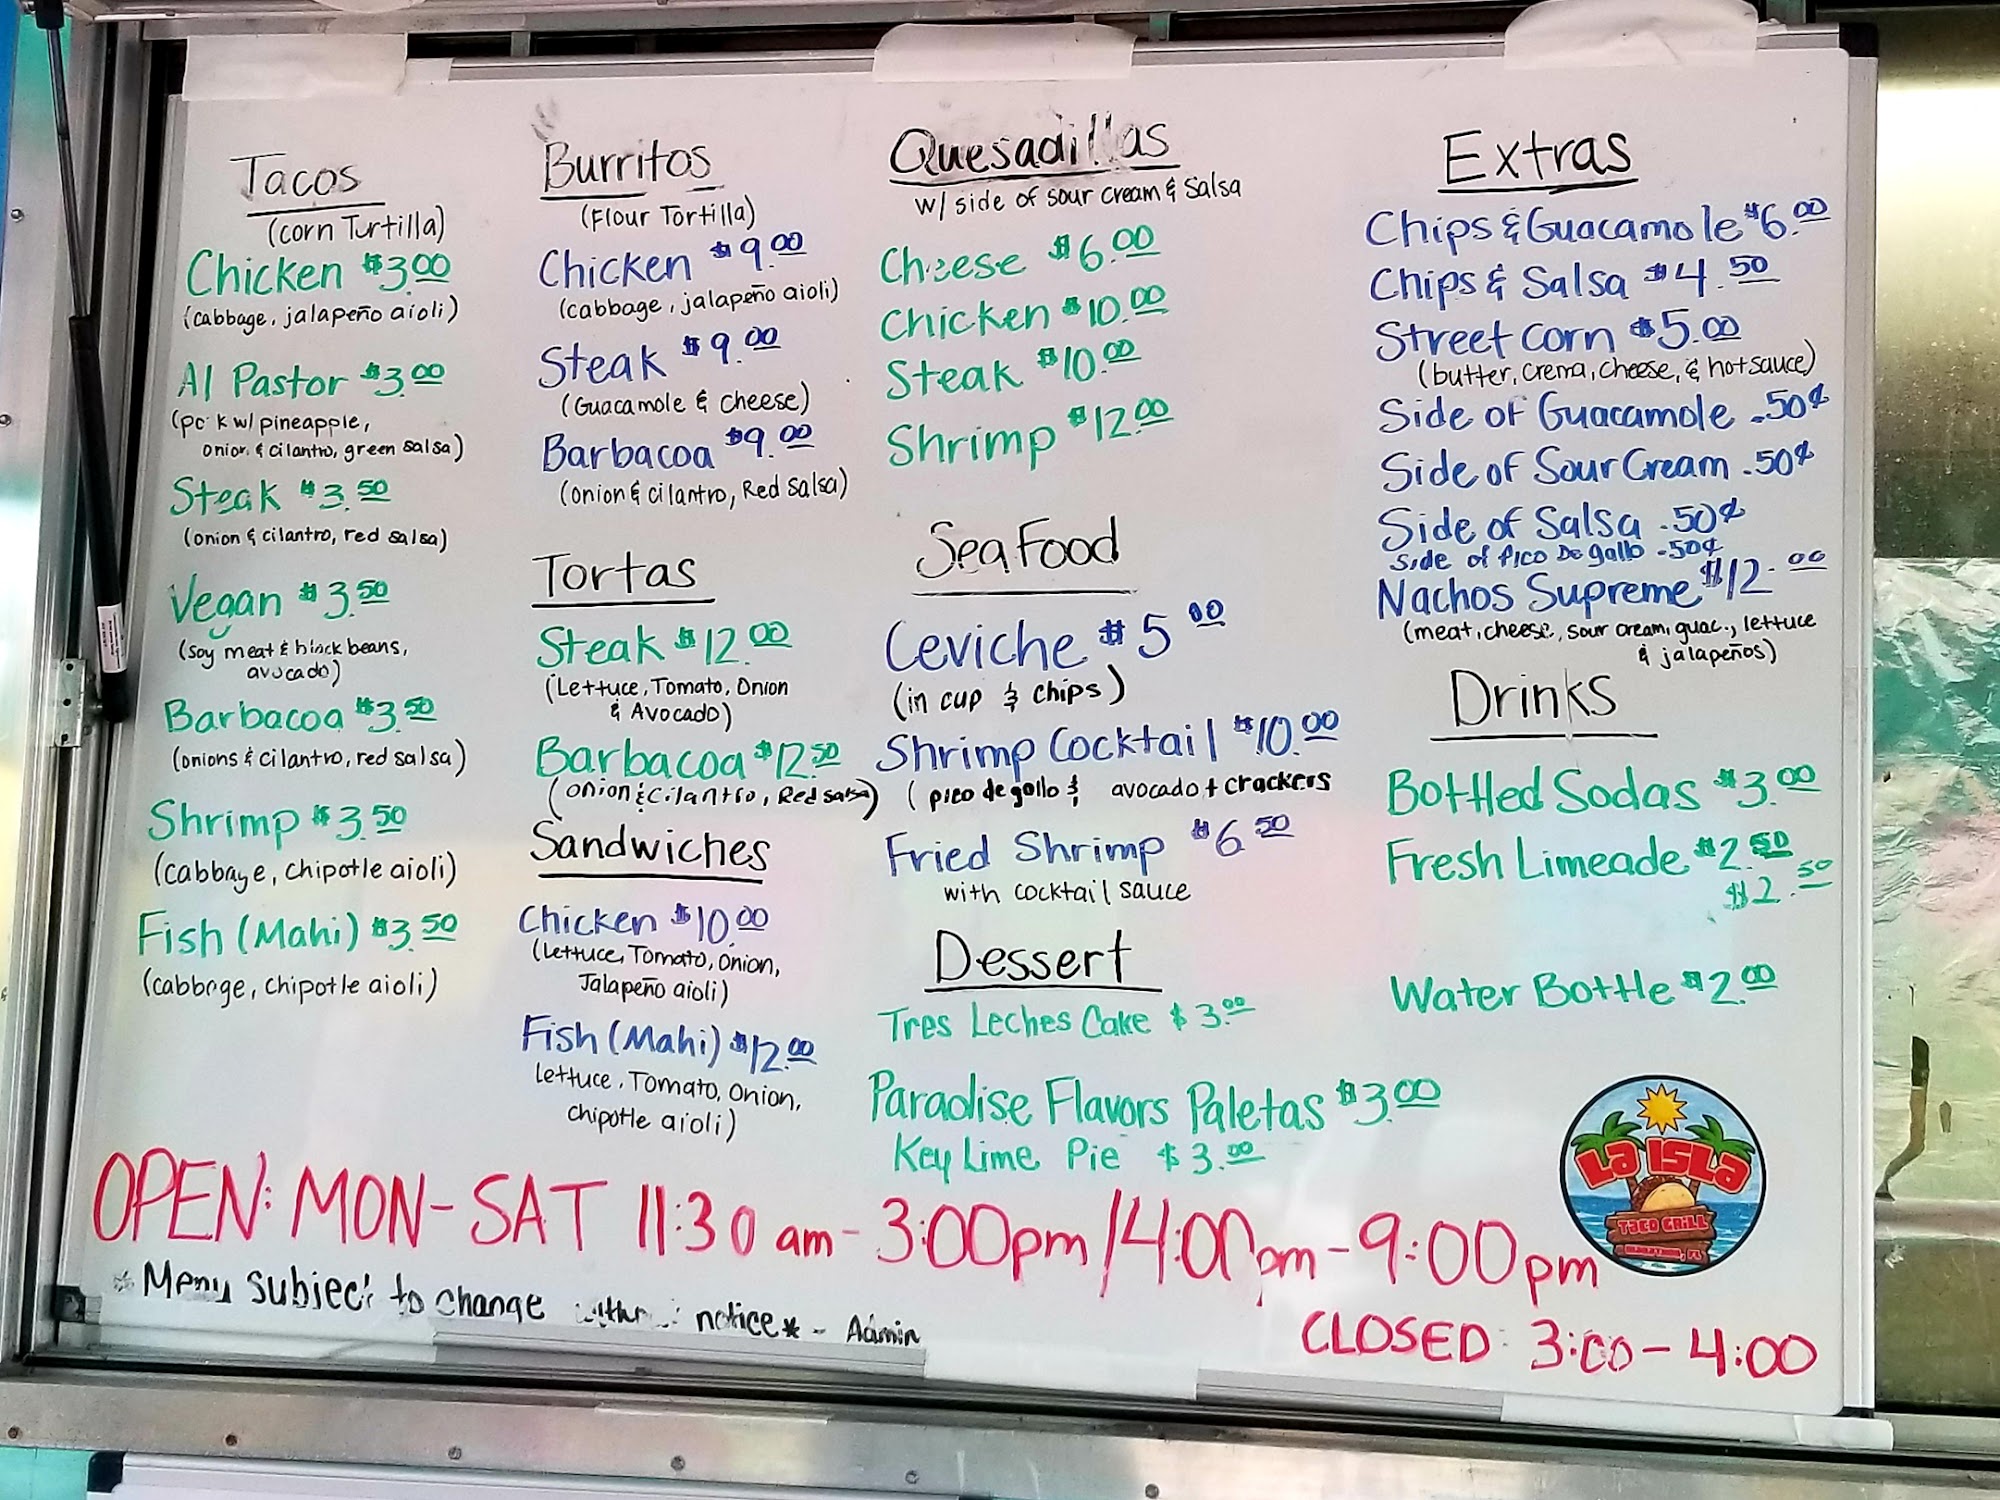 Tacos
(corn Turtilla)
Chicken $3.00
(cabbage, jalapeño aioli)
Al Pastor $3.00
(pork w/ pineapple,
onion & cilantro, green salsa)
Steak $3.50
(onion & cilantro, red salsa)
Vegan $3.50
(soy meat & black beans,
avocado)
Barbacoa $3.50
(onions & cilantro, red salsa)
Shrimp $3.50
(cabbage, chipotle aioli)
Fish (Mahi) $3.50
(cabbage, chipotle aioli)
Burritos
(Flour Tortilla)
Chicken $9.00
(cabbage, jalapeño aioli)
Steak $9.00
(Guacamole & cheese)
Barbacoa $9.00
(onion & cilantro, Red Salsa)
Tortas
Steak $12.00
(Lettuce, Tomato, Onion
& Avocado)
Barbacoa $12.50
(onion & cilantro, Red salsa)
Sandwiches
Chicken $10.00
(Lettuce, Tomato, onion,
Jalapeño aioli)
Fish (Mahi) $12.00
Lettuce, Tomato, Onion,
chipotle aioli)
Quesadillas
w/ side of sour cream & Salsa
Cheese $6.00
Chicken $10.00
Steak $10.00
Shrimp $12.00
Seafood
Ceviche $5.00
(in cup & chips)
Shrimp Cocktail $10.00
(pico de gallo & avocado + crackers
Fried Shrimp $6.50
with cocktail sauce
Dessert
Tres Leches Cake $3.00
Paradise Flavors Paletas $3.00
Key Lime Pie $3.00
Extras
Chips & Guacamole $6.00
Chips & Salsa $4.50
Street Corn $5.00
(butter, crema, cheese, & hot sauce)
Side of Guacamole .50¢
Side of Sour Cream .50¢
Side of Salsa .50¢
Side of Pico De gallo .50¢
Nachos Supreme $12.00
(meat, cheese, sour cream, guac., lettuce
& jalapeños)
Drinks
Bottled Sodas $3.00
Fresh Limeade $2.50
$2.50
Water Bottle $2.00
LA ISLA
TACO GRILL
MARATHON, FL
OPEN: MON-SAT 11:30 am - 3:00pm / 4:00pm - 9:00pm
CLOSED: 3:00 - 4:00
* Menu subject to change without notice * - Admin